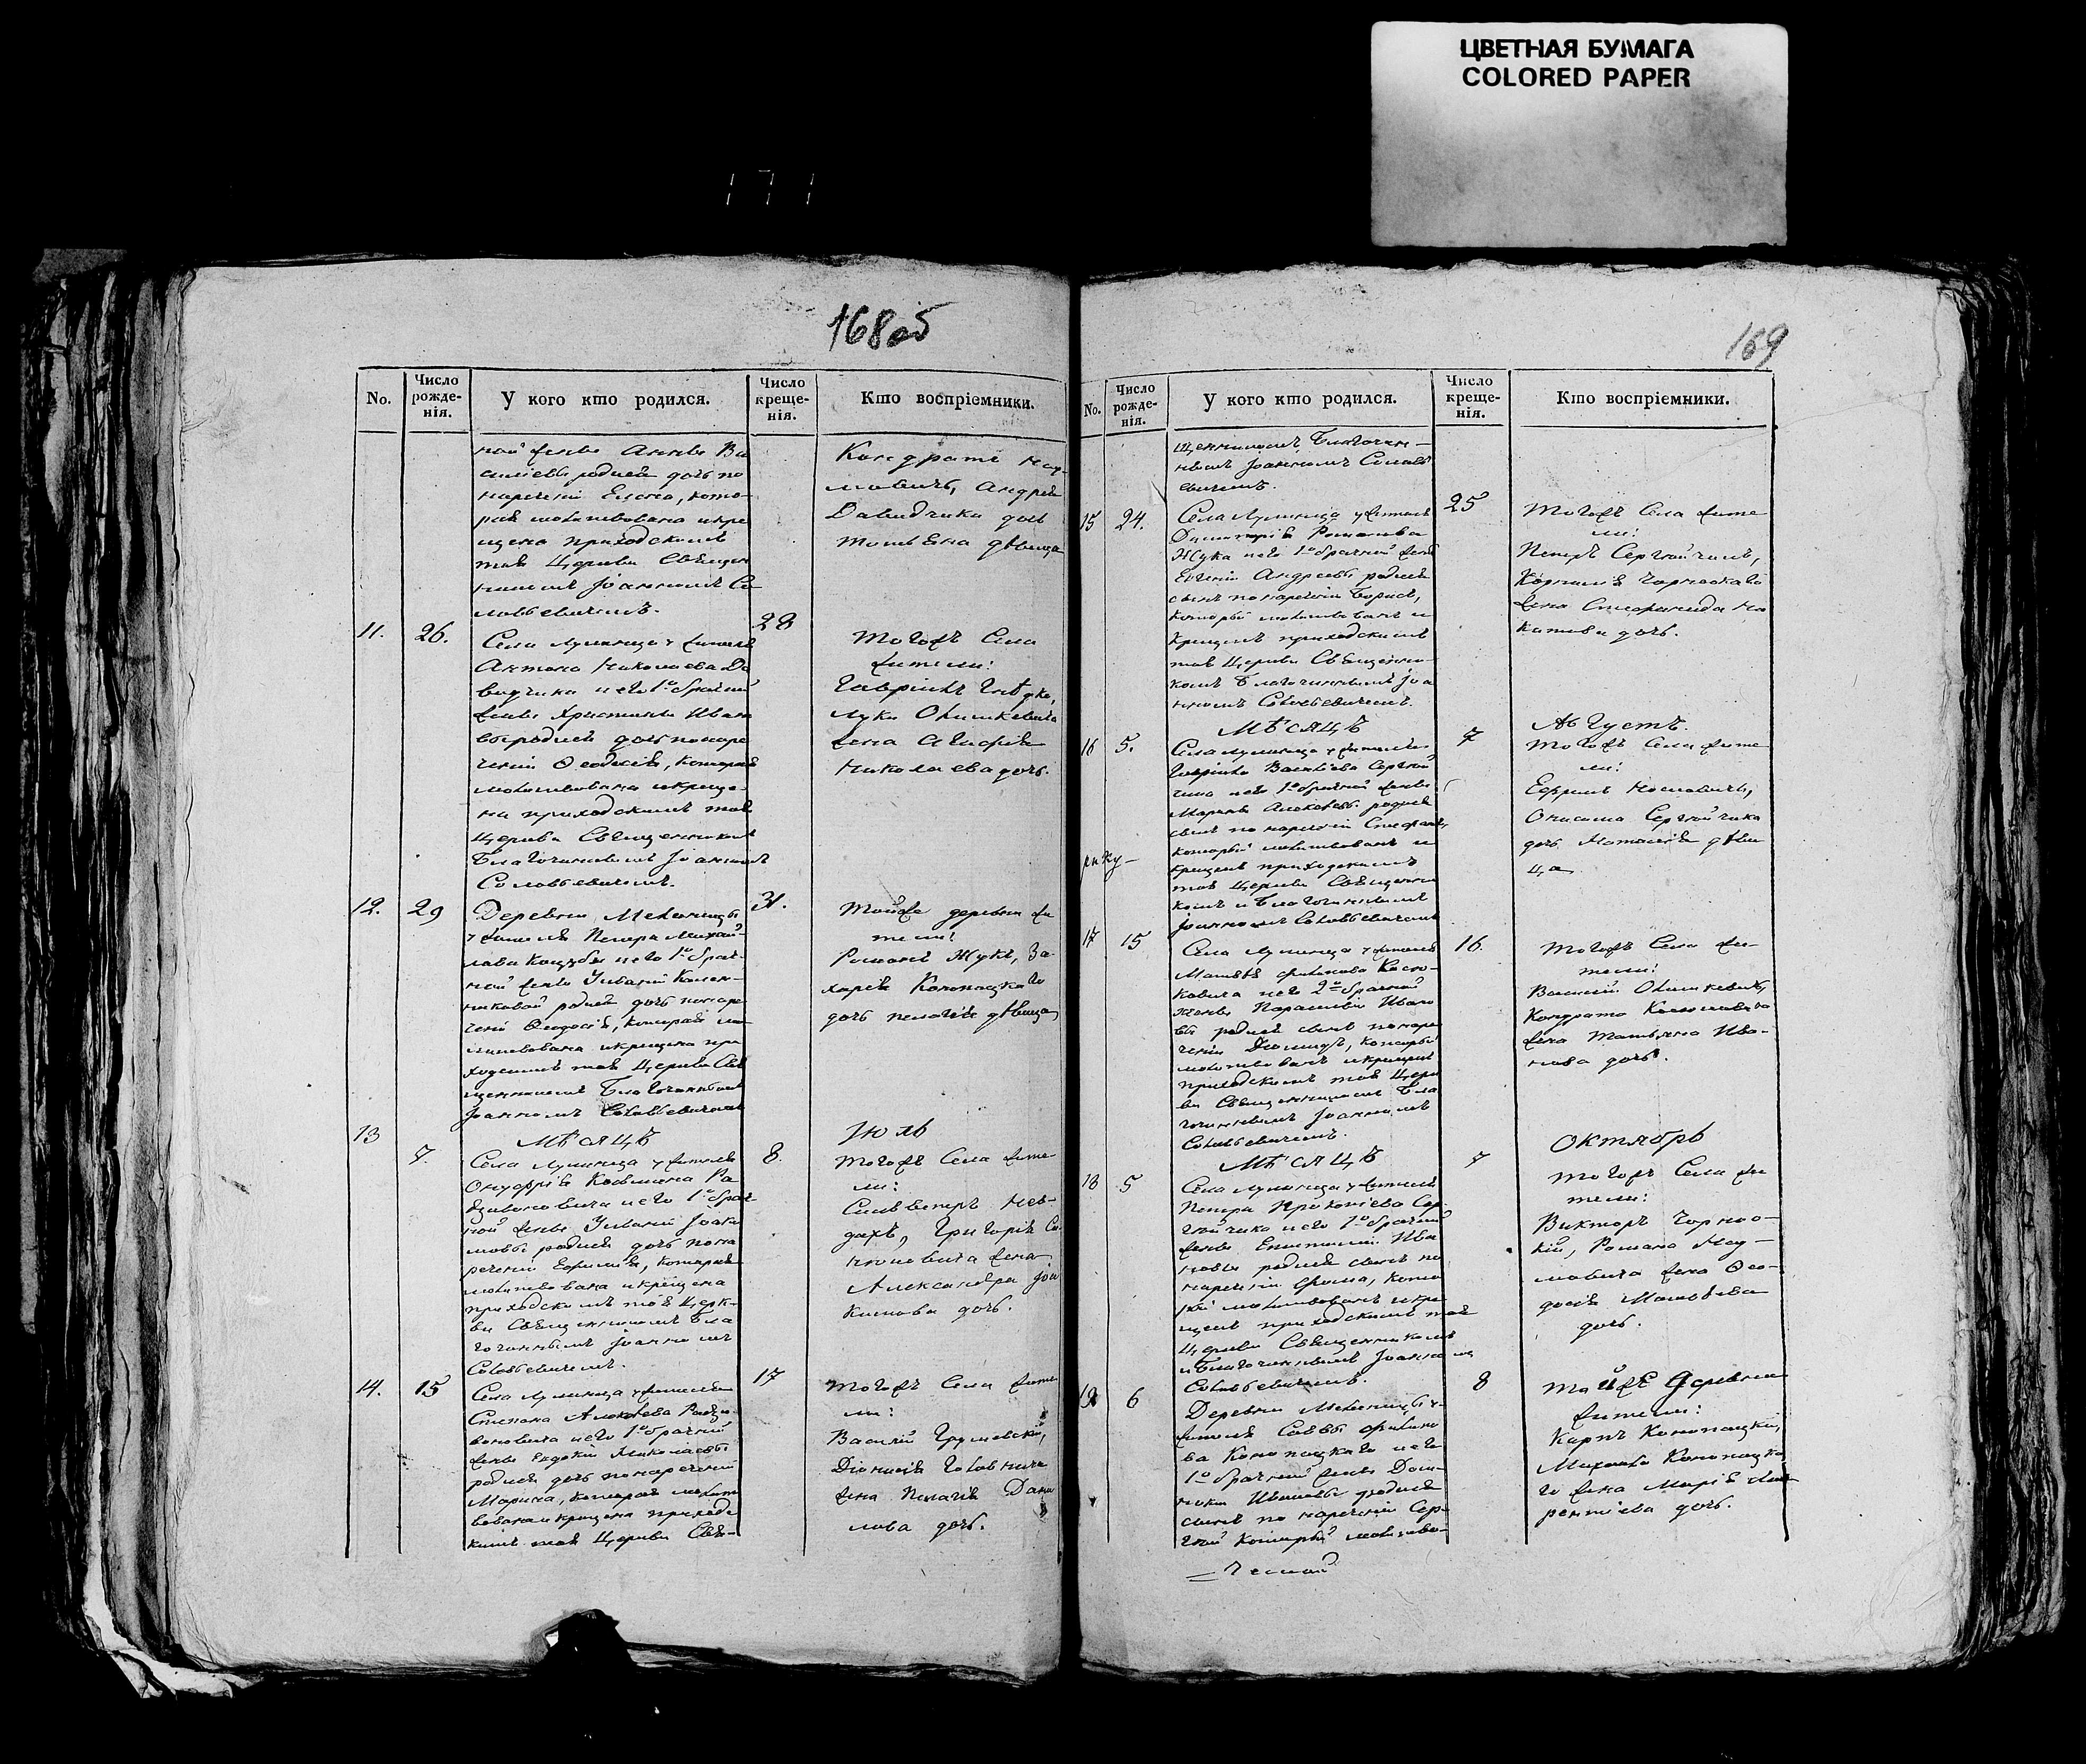 ЦВЕТНАЯ БУМАГА
COLORED PAPER
171
168об
No.
Число рожденія.
У кого кто родился.
Число крещенія.
Кто воспріемники.
ной женѣ Анны Ва
силіевы родися дочь по
нареченіи Елена, кото-
рая молитвована и кре
щена приходскимъ
тоя Церкви Священ
никомъ Іоанномъ Со
ловьевичемъ.
Кондратъ
мовичъ, Андрея
Давидчика дочь
Татьяна дѣвица
11.
26.
Села Лунинца у жителя
Антона Николаева Да
видчика и его 1о брачной
жены Христины Ивано
вы родися дочь по наре
ченіи Ѳеодосія, которая
молитвована и креще-
на приходскимъ тоя
Церкви Священникомъ
Благочиннымъ Іоанномъ
Соловьевичемъ.
28
Тогожъ Села
жители:
Гавріилъ
Луки
жена Агафія
Николаева дочь.
12.
29
Деревни
у жителя Петра Михай-
лова и его 1о брач-
ной жены Уліаніи
родися дочь по наре
ченіи Ѳеодосія, которая мо
литвована и крещена при
ходскимъ тоя Церкви Свя
щенникомъ Благочиннымъ
Іоанномъ Соловьевичемъ
31.
Тойже деревни жи
тели:
Романъ Жукъ, За-
харія Конопацкаго
дочь Пелагія дѣвица
13
Мѣсяцъ
Іюль
7.
Села Лунинца у жителя
Онуфрія Козмина Ра
дзивоновича и его 1о брач-
ной жены Уліаніи Іоаки
мовы родися дочь по на
реченіи Евфимія, которая
молитвована и крещена
приходскимъ тоя Церк-
ви Священникомъ Бла
гочиннымъ Іоанномъ
Соловьевичемъ.
8.
Тогожъ Села жите
ли:
Сильвестръ Нев-
дахъ, Григорія
жена
Александра Іоа
кимова дочь.
14.
15
Села Лунинца у жителя
Степана Алексѣева Радзи-
воновича и его 1о брачной
жены Евдокіи Николаевы
родися дочь по нареченіи
Марина, которая молит
вована и крещена приходс
кимъ тоя Церкви Свя-
17
Тогожъ Села жите
ли:
Василій
Діонисія
жена Пелагія Дани
лова дочь.
169
No.
Число рожденія.
У кого кто родился.
Число крещенія.
Кто воспріемники.
щенникомъ Благочин-
нымъ Іоанномъ Соловь
евичемъ.
15
24.
Села Лунинца у жителя
Димитрія Романова
Жука и его 1о брачной жены
Евгеніи Андреевы родися
сынъ по нареченіи Борисъ,
который молитвованъ и
крещенъ приходскимъ
тоя Церкви Священни-
комъ Благочиннымъ Іоа
нномъ Соловьевичемъ.
25
Тогожъ Села жите
ли:
Петръ Сергѣйчикъ,
Корнилія Чорноокаго
жена Стефанида
дочь.
Мѣсяцъ
Августъ.
16
5.
Села Лунинца у жителя
Гавріила Василіева Сергѣй
чика и его 1о брачной жены
Марины Алексѣевы родися
сынъ по нареченіи Стефанъ,
который молитвованъ и
крещенъ приходскимъ
тоя Церкви Священни
комъ и Благочиннымъ
Іоанномъ Соловьевичемъ
7
Тогожъ Села жите
ли:
Ефремъ
Онисима Сергѣйчика
дочь Наталія дѣви
ца
17
15
Села Лунинца у жителя
Матвѣя Филипова Касю-
ковича и его 2о брачной
жены Параскевіи Ивано
вы родися сынъ по наре
ченіи Діомидъ, который
молитвованъ и крещенъ
приходскимъ тоя Церк
ви Священникомъ Бла
гочиннымъ Іоанномъ
Соловьевичемъ.
16.
Тогожъ Села жи-
тели:
Василій
Кондрата
жена Татьяна Ива-
нова дочь.
Мѣсяцъ
Октябрь
18
5
Села Лунинца у жителя
Петра Прокопіева Сер
гѣйчика и его 1о брачной
жены Ива
новы родися сынъ по
нареченіи Фома, кото
рый молитвованъ и кре
щенъ приходскимъ тоя
Церкви Священникомъ
и Благочиннымъ Іоанномъ
Соловьевичемъ.
7
Тогожъ Села жи
тели:
Викторъ Чорноо-
кій, Романа
жена Ѳео-
досія Матвѣева
дочь.
19
6
Деревни у
жителя Саввы Филипо
ва Конопацкаго и его
1о брачной жены Дом-
ники родися
сынъ по нареченіи Сер-
гѣй который молитво-
8
Тойже деревни
жители:
Карпъ Конопацкій,
Михаила Конопацка
го жена Марія Лав
рентіева дочь.